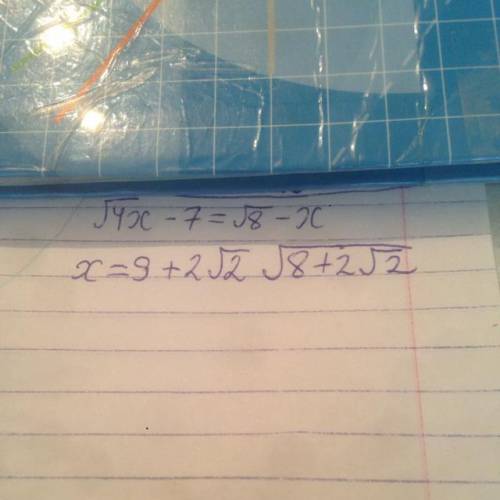 √4x - 7 = √8 - x
x = 9 + 2√2 √(8 + 2√2)